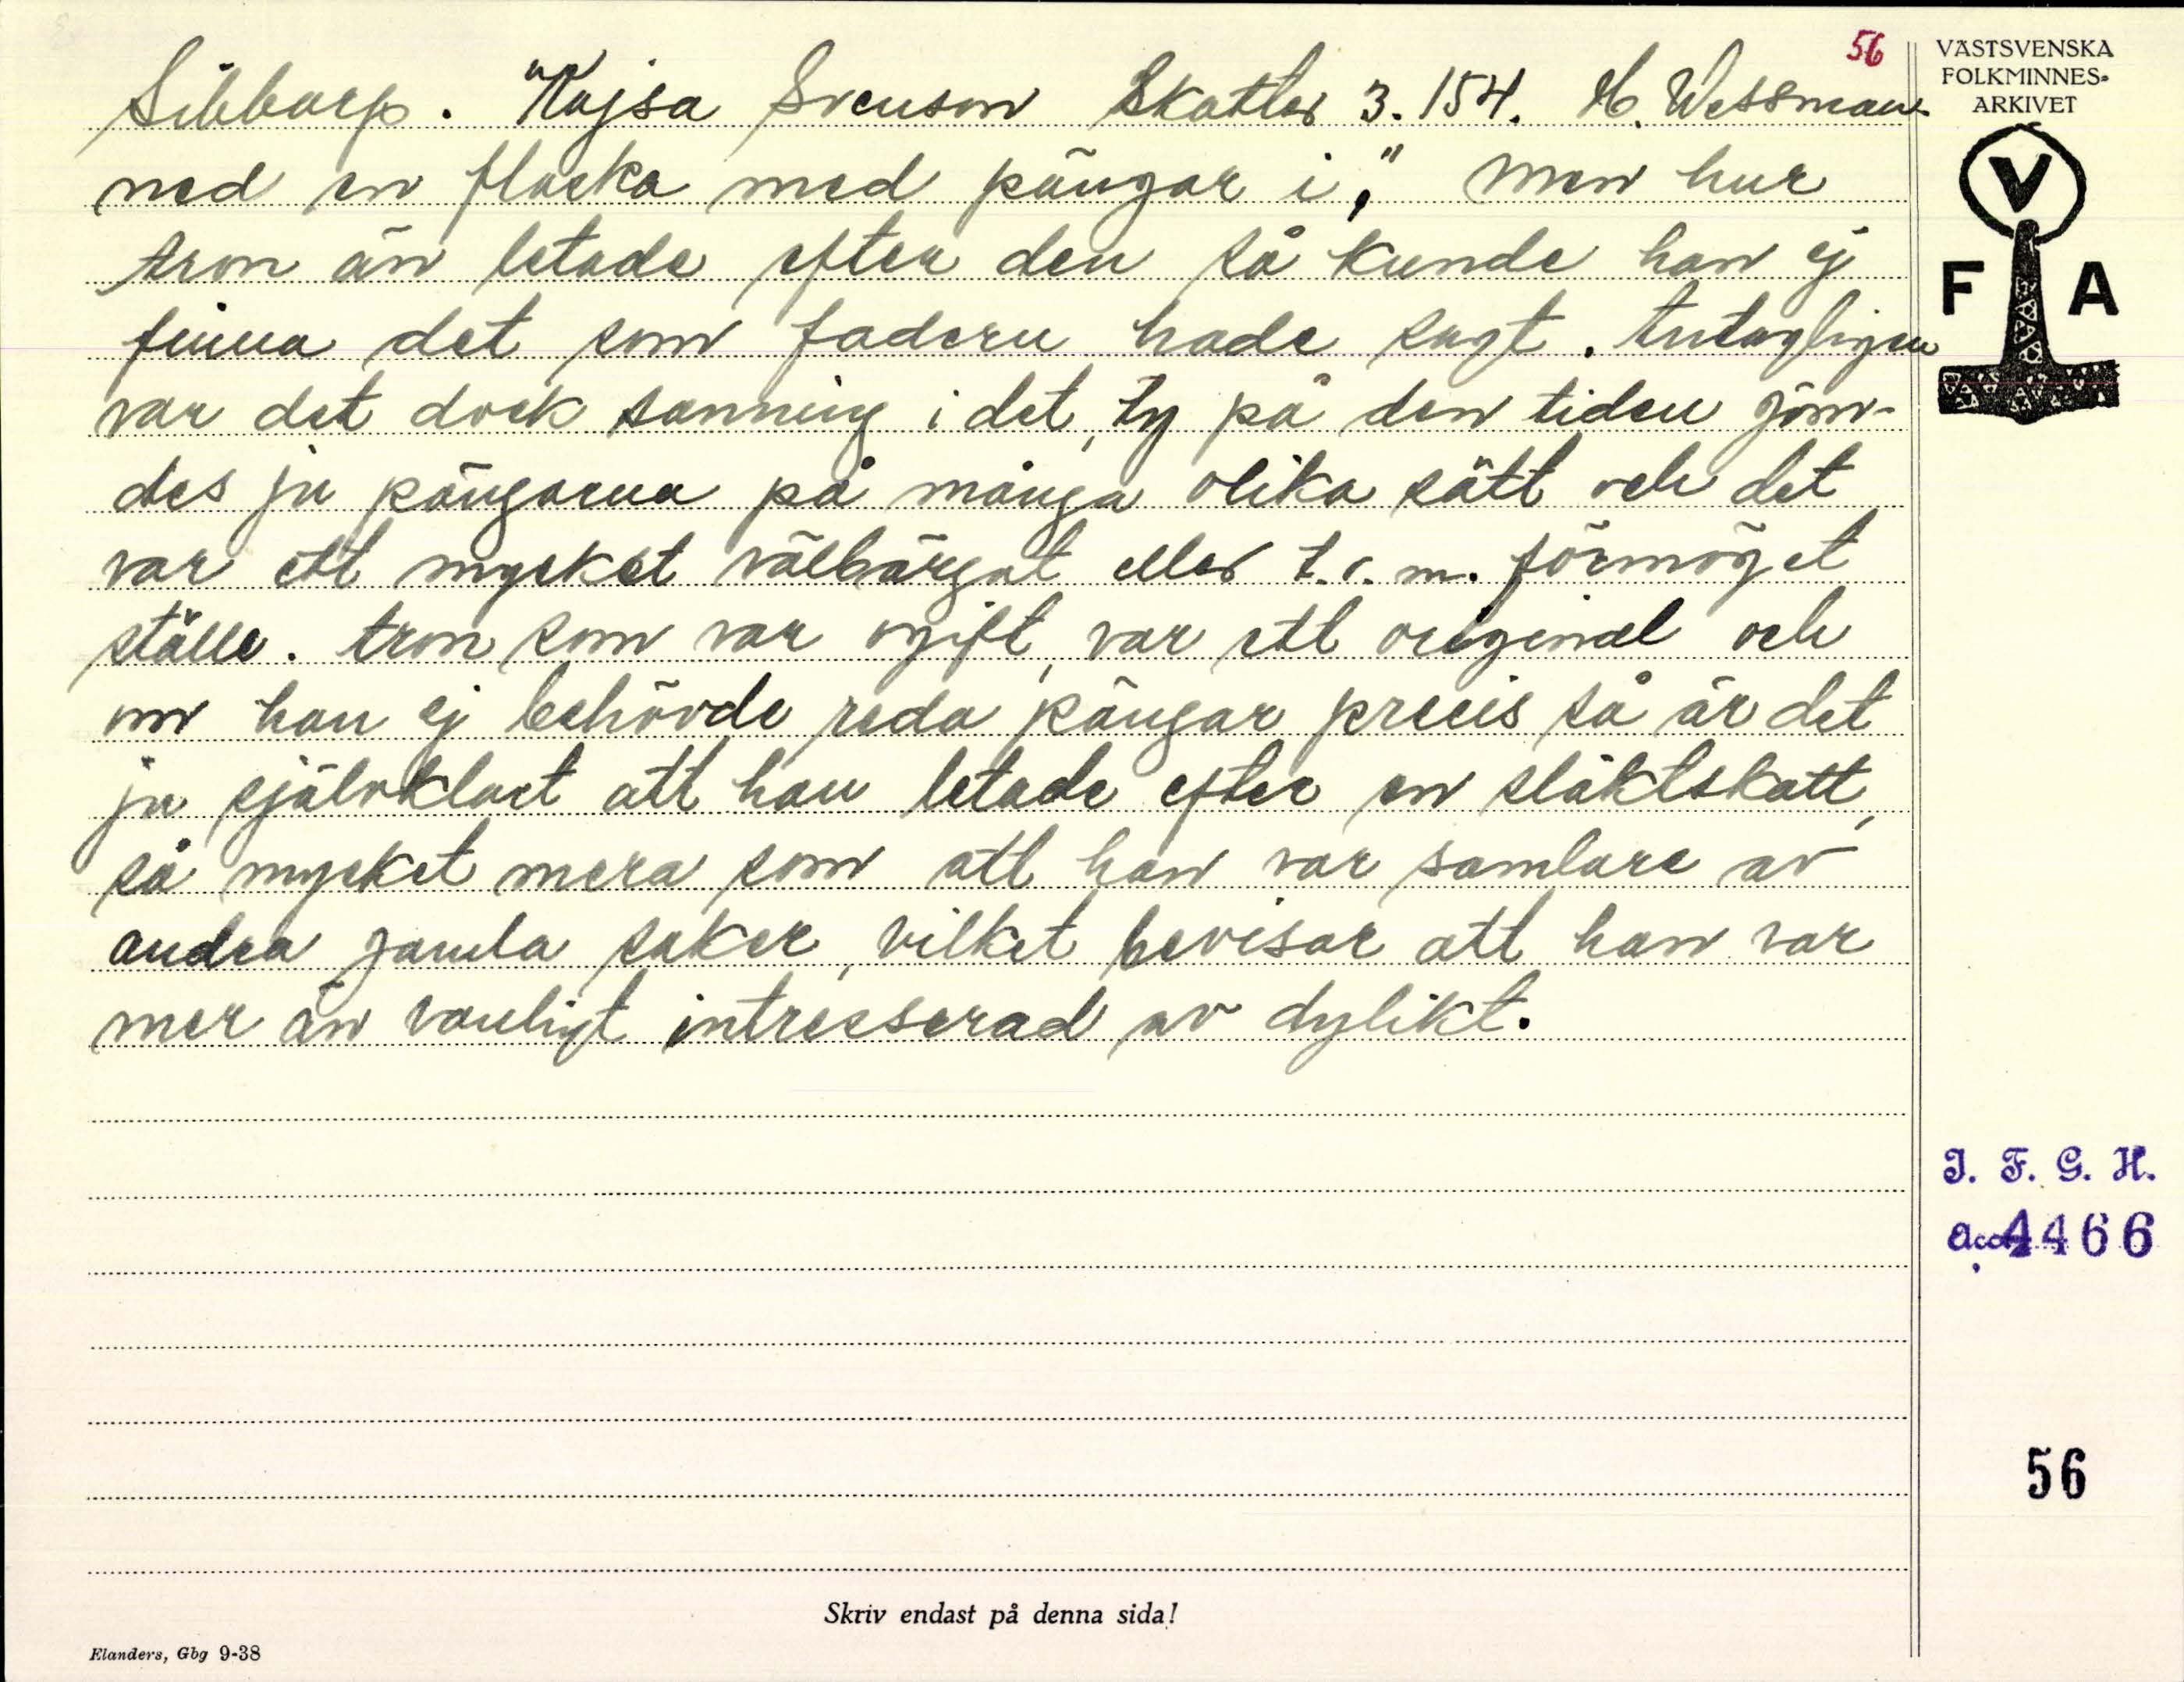 56
Sibbarp. "Kajsa Svenson Skatter 3. 154. H. Wessman
ned en flaska med pängar i," men hur
Aron än letade efter den så kunde han ej
finna det som fadern hade sagt. Antagligen
var det dock sanning i det, ty på den tiden göm-
des ju pängarna på många olika sätt och det
var ett mycket välbärgat eller t.o.m. förmöget
ställe. Aron som var ogift, var ett original och
om han ej behövde reda pängar precis så är det
ju självklart att han letade efter en släktskatt,
så mycket mera som att han var samlare av
andra gamla saker, vilket bevisar att han var
mer än vanligt intresserad av dylikt.
VÄSTSVENSKA
FOLKMINNES-
ARKIVET
V
F A
I. F. G. H.
Acc. 4466
56
Skriv endast på denna sida!
Elanders, Gbg 9-38